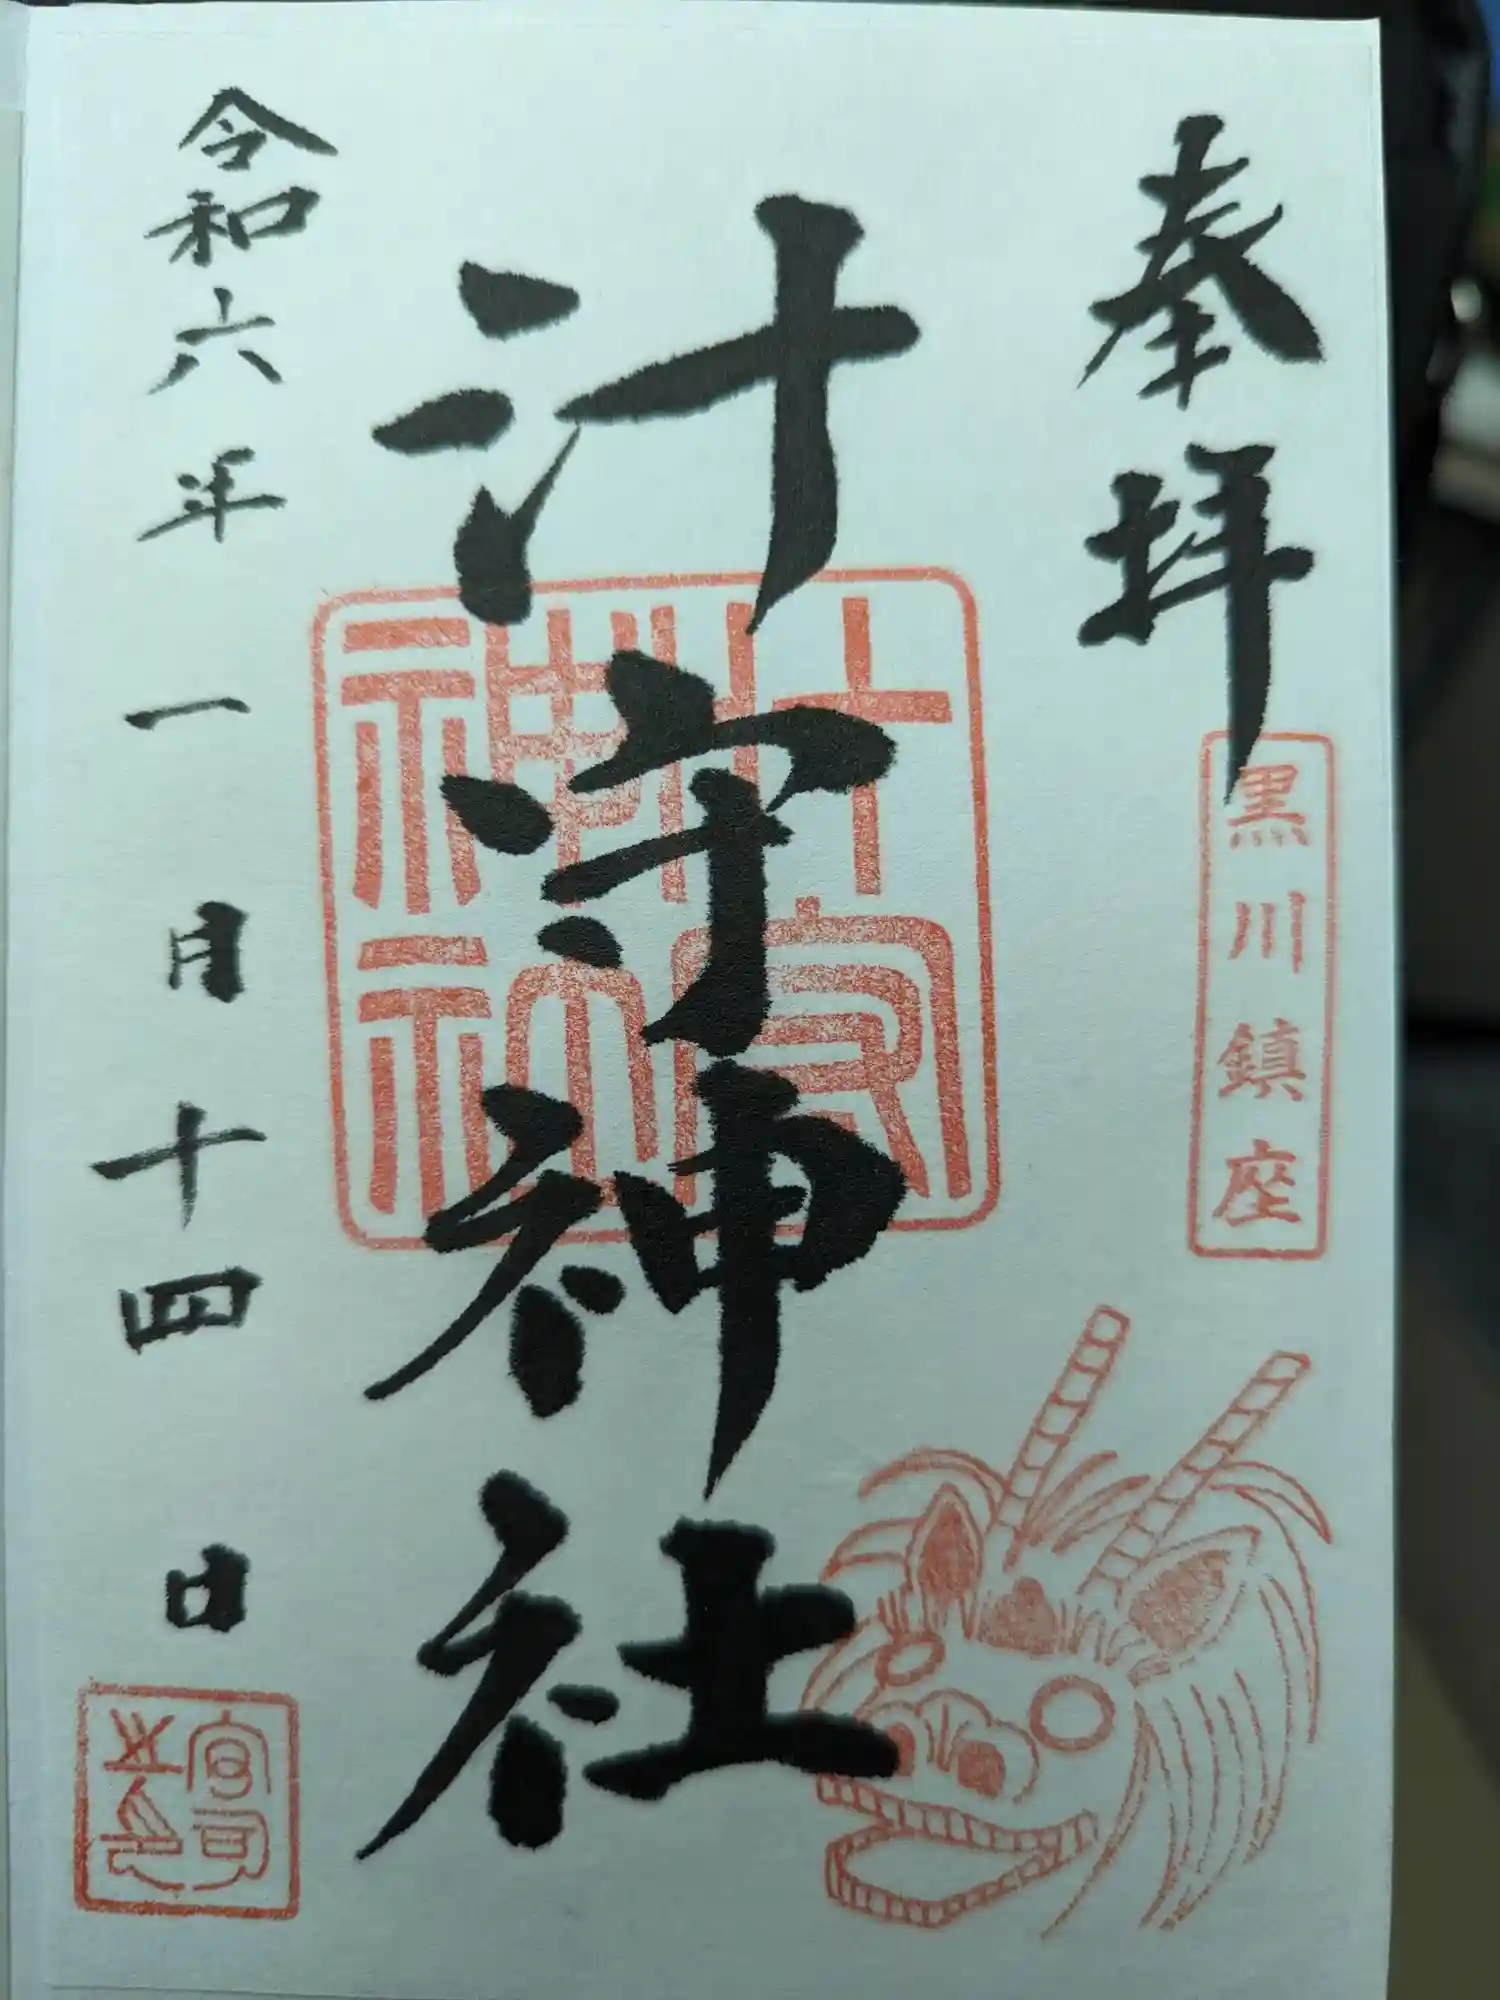 奉拝
黒川鎮座
汁守神社
汁守
神社
令和六年一月十四日
宮司
之印